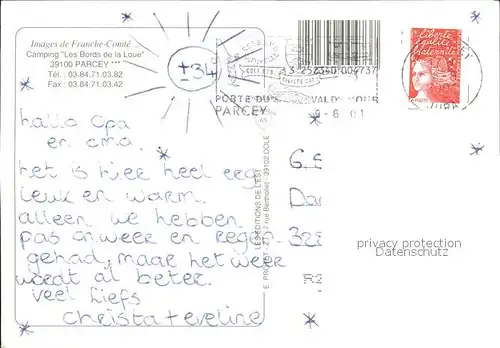 Images de Franche-Comté ...
Camping "Les Bords de la Loue"
39100 PARCEY ***
Tél. : 03.84.71.03.82
Fax : 03.84.71.03.42
± 34
3 252340 007737
liberté
égalité
fraternité
LA POSTE
PORTE DU VAL D'AMOUR
PARCEY
hallo Opa
en oma.
het is hier heel erg
leuk en warm.
alleen we hebben
pas onweer en regen
gehad, maar het weer
wordt al beter.
veel liefs
Christa + eveline
LES EDITIONS DE L'EST
39102 DOLE
privacy protection
Datenschutz